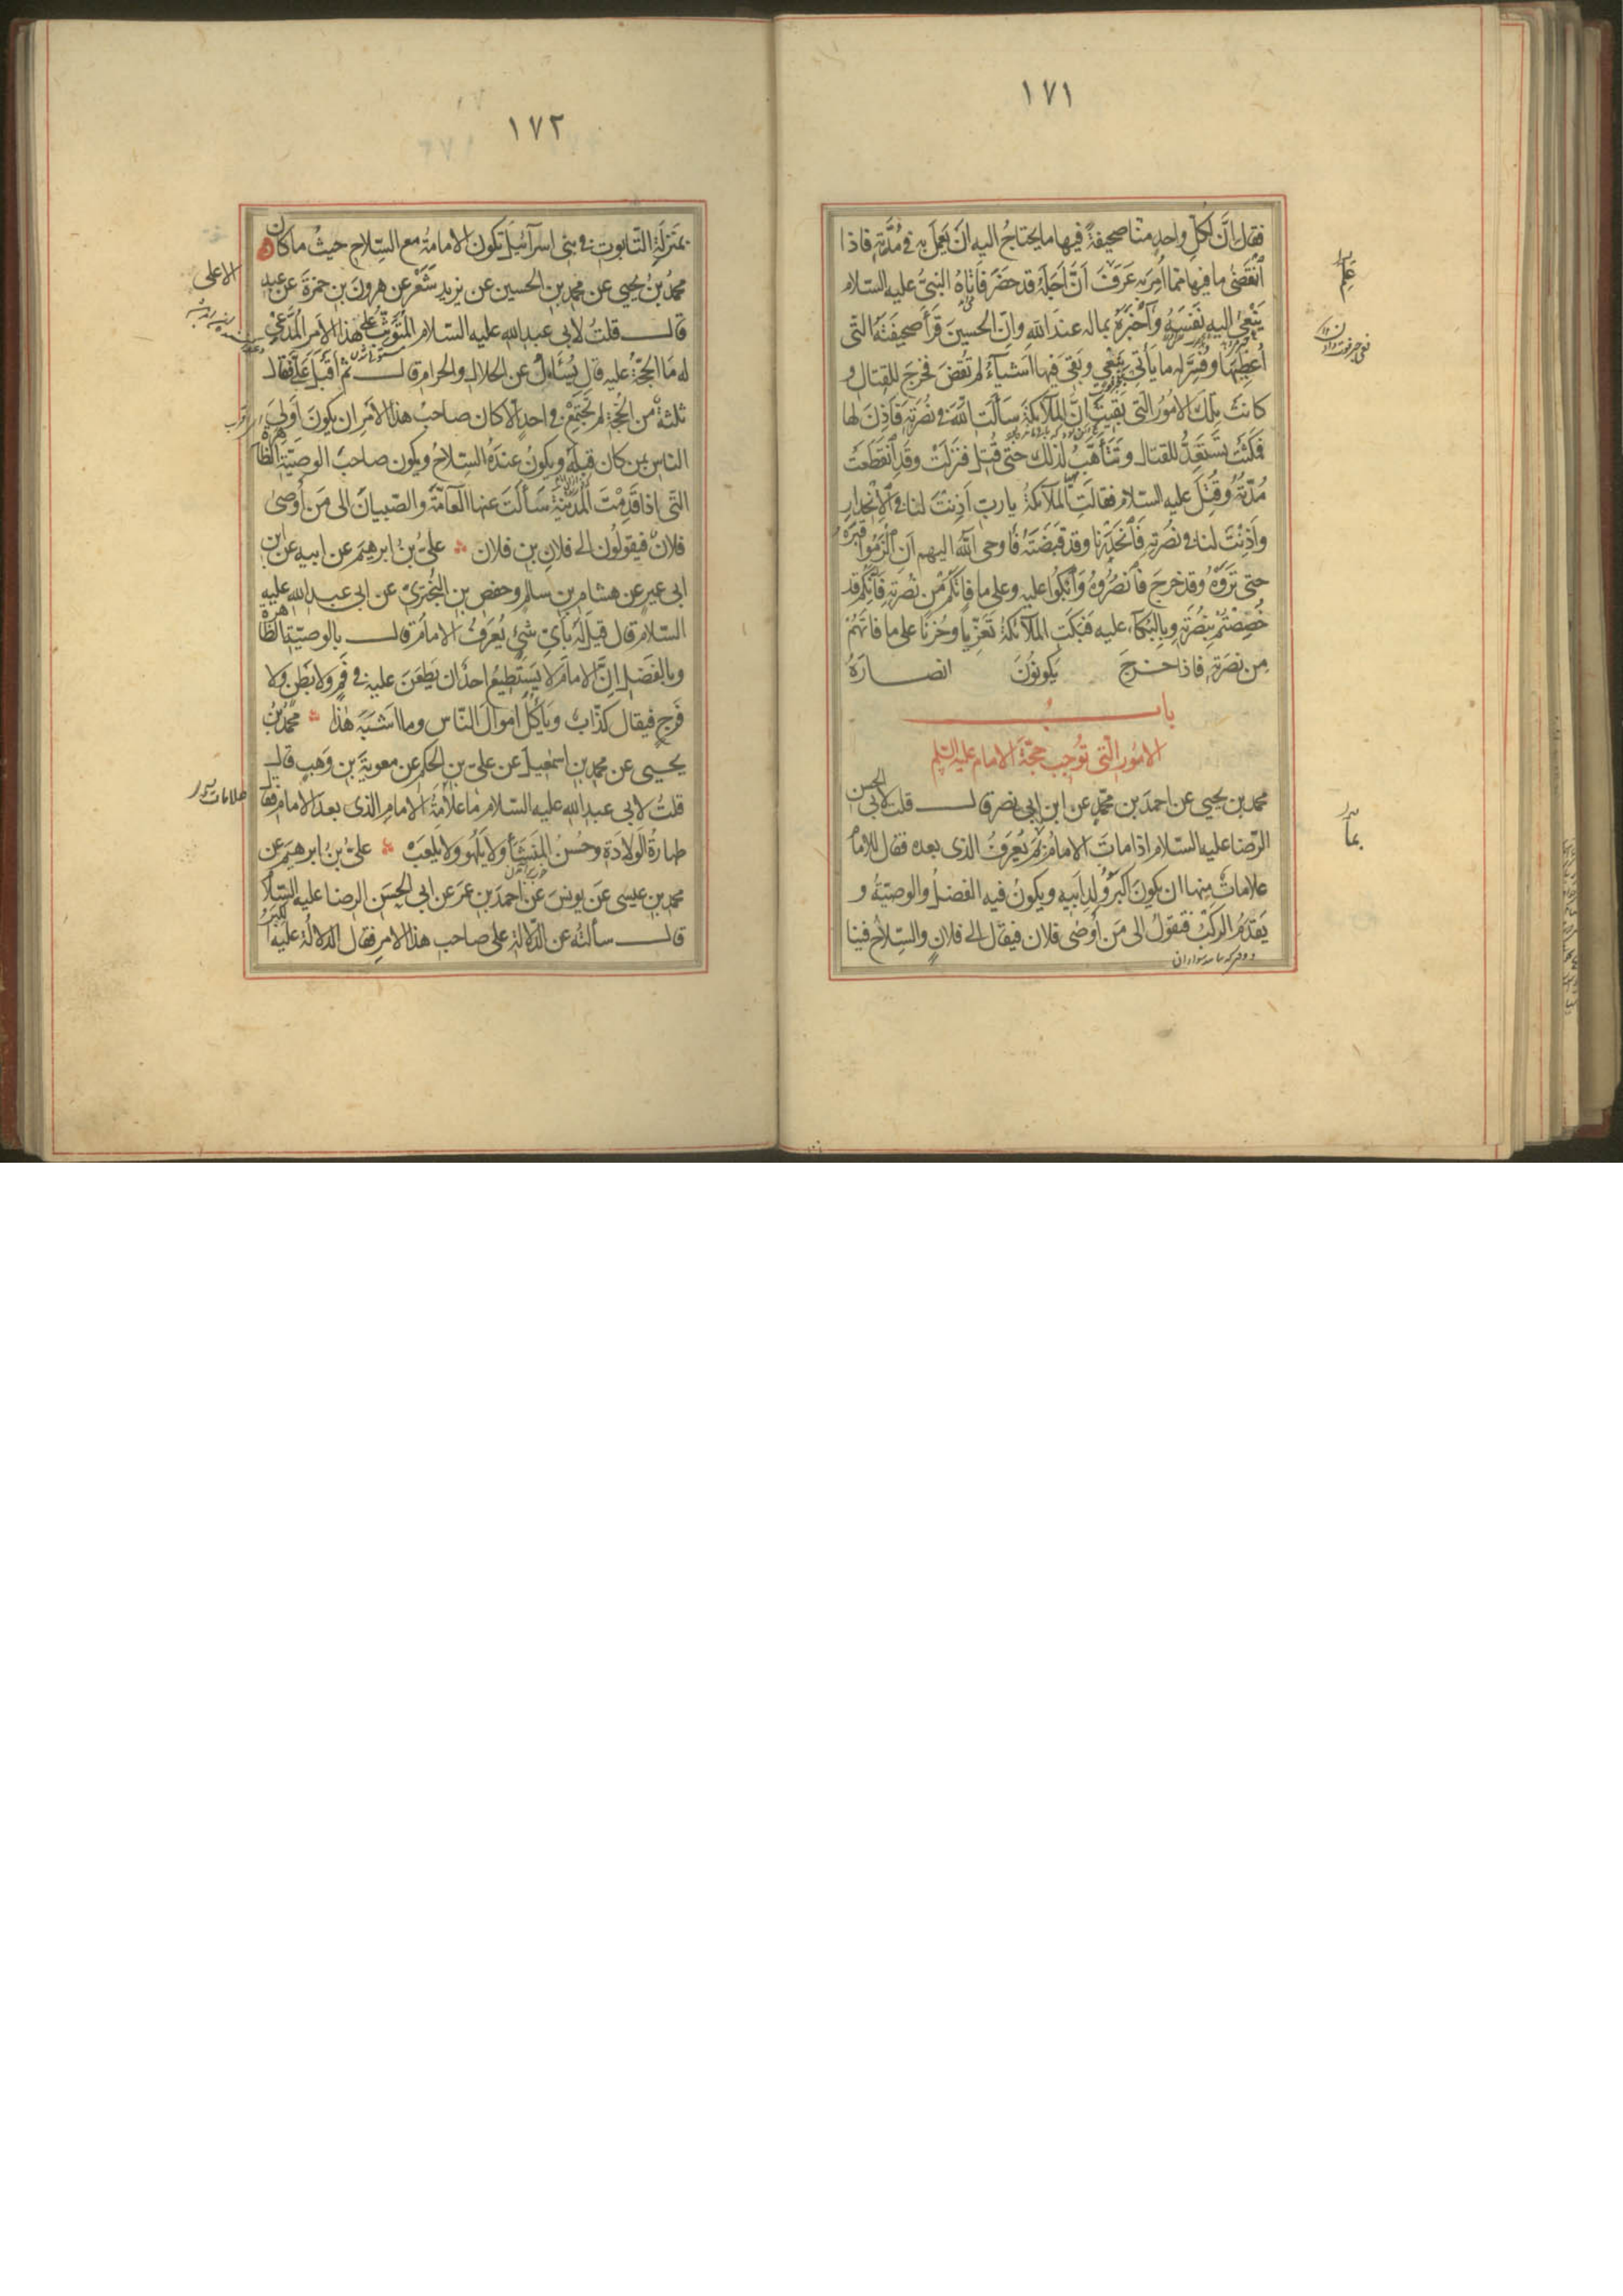 ١٧١
فقال انّ لكلّ واحدٍ منّا صحيفةً فيها ما يحتاجُ اليه اَنْ يَعمَلَ به في مُدَّتِه فاذا
اْنقَضىٰ ما فيها ممّا اُمِرَ به عَرَفَ اَنَّ اَجَلَهُ قد حَضَرَ فَاَتاهُ النبيُّ عليه السّلام
يَنْعىٰ اليه نَفسَهُ وَاَخْبَرَهُ بما له عندَ اللهِ وانّ الحسينَ قَرَأَ صحيفَتَه التّى
اُعطِيَها وفُسِّرَ له ما يأتى بنَعْي وبَقِىَ فيها اَشياءُ لم تُقْضَ فخرَجَ للقتال و
كانَتْ تِلكَ الاُمورُ التّى بَقِيَتْ انّ الملآئكةَ سَاَلَتِ اللهَ فى نُصْرَتِه فَاَذِنَ لها
فمَكَثَتْ تَسْتَعِدُّ للقتال وتَتَأَهَّبُ لذلك حتّى قُتِلَ فنَزَلَتْ وقَدِ انْقَطَعَتْ
مُدّتُهُ وقُتِلَ عليه السّلام فقالَتِ الملآئكةُ يا ربِّ اَذِنْتَ لنا فى الاِنْحِدارِ
واَذِنْتَ لنا فى نُصْرَتِه فَانْحَدَرْنا وقد قَبَضْتَهُ فَاَوحى اللهُ اليهم اَنِ الْزَمُوا قَبْرَهُ
حتى تَرَوْهُ وقد خرجَ فَانْصُرُوهُ وَابْكُوا عليه وعلى ما فاتَكُمْ مِنْ نُصْرَتِه فَاِنَّكُم قد
خُصِّصْتُمْ بِنُصْرَتِه وبِالبُكآءِ عليه فَبَكَتِ الملآئكةُ تَعَزِّياً وحُزنًا على ما فاتَهُمْ
مِن نُصْرَتِه فاذا خَرَجَ يَكونُونَ انصارَهُ
بابٌ
الامُور الّتى تُوجِب حجّةَ الامام عليه السّلم
محمد بن يحيى عن احمدَ بن محمّدٍ عن ابن ابى نصر قال قلت لابى الحسن
الرّضا عليه السّلام اذا ماتَ الامامُ بِمَ يُعرَفُ الذى بعده فقال للامامِ
علاماتٌ منها ان يكونَ اَكبَرَ وُلدِ اَبيه ويكونُ فيه الفضلُ والوصيّةُ و
يَقدَمُ الرَّكبُ فيَقُولُ الى مَن اَوصٰى فلان فيقال الى فلانٍ والسّلاحُ فينا
بما
١٧٢
بمَنزِلَةِ التّابوت فى بنى اسرآئيلَ تكون الامامةُ مع السّلاحِ حيثُ ما كانَ
محمّدُ بنُ يحيى عن محمد بن الحسين عن يزيد شَغَرْ عن هرونَ بن حمزةَ عن عبد
الاعلى
قال قلتُ لابى عبد الله عليه السّلام المُتَوَثِّبُ على هٰذا الاَمرِ المُدَّعِى
له ما الحُجّةُ عليه قال يُسْئَلُ عن الحلالِ والحرامِ قال ثمّ اَقبَلَ عَلَىَّ فقال
ثلثةٌ من الحُجّةِ لم تَجْتَمِعْ فى واحدٍ اِلّا كان صاحبَ هذا الاَمرِ ان يكونَ اَولىَ
النّاسِ بمن كان قَبلَهُ ويكونُ عندَهُ السّلاحُ ويكون صاحبَ الوصيّةِ الظّاهِرة
التّى اذا قَدِمْتَ المَدينَةَ سَأَلتَ عنها العامّةَ والصّبيانَ الى مَن أَوصىٰ
فلانٌ فيقولُون الى فلانِ بن فلان علىُّ بنُ ابرهيمَ عن ابيه عن ابن
ابى عميرٍ عن هشامِ بن سالمٍ وحفصِ بن البُختَرىّ عن ابى عبد الله عليه
السّلام قال قيلَ لَهُ بِاَىِّ شىءٍ يُعرَفُ الامامُ قال بالوصيّةِ الظّاهِرة
وبالفَضلِ انّ الامامَ لا يَستَطيعُ احدٌ ان يَطعَنَ عليه فى فَمٍ ولا بَطنٍ ولا
فَرجٍ فيقال كذّابٌ ويَأكُلُ اموالَ النّاس وما اَشبَهَ هٰذا محمّدُ بنُ
يحيى عن محمد بن اسمٰعيلَ عن علىّ بن الحكمِ عن معويةَ بن وَهبٍ قال
قلتُ لابى عبد الله عليه السّلام ما علامةُ الامامِ الذى بعدَ الامامِ فقال
طهارةُ الولادَةِ وحُسنُ المَنشَأ ولا يَلهُو ولا يَلعَبُ علىُّ بنُ ابرهيمَ عن
محمد بن عيسى عن يونسَ عن احمدَ بن عمرَ عن ابى الحسَن الرضا عليه السّلام
قال سألتُه عن الدّلالةِ على صاحبِ هذا الامرِ فقال الدّلالةُ عليه الكِبَرُ